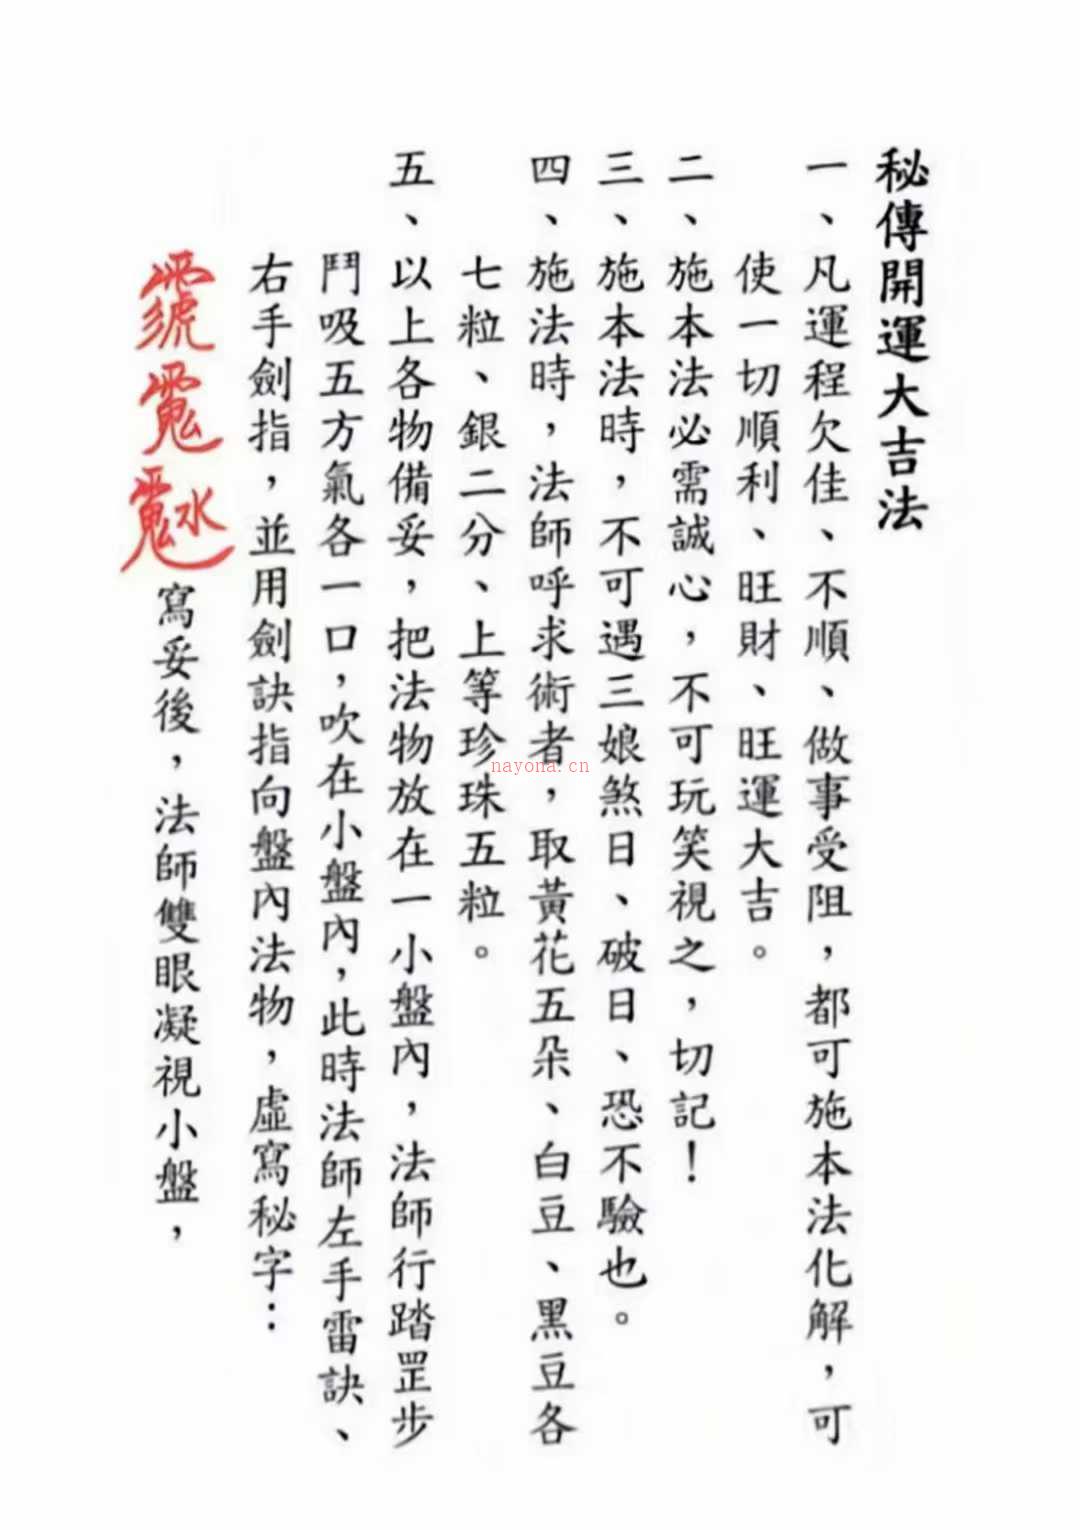 秘傳開運大吉法
一、凡運程欠佳、不順、做事受阻，都可施本法化解，可
使一切順利、旺財、旺運大吉。
二、施本法必需誠心，不可玩笑視之，切記！
三、施本法時，不可遇三娘煞日、破日、恐不驗也。
四、施法時，法師呼求術者，取黃花五朵、白豆、黑豆各
七粒、銀二分、上等珍珠五粒。
五、以上各物備妥，把法物放在一小盤內，法師行踏罡步
鬥吸五方氣各一口，吹在小盤內，此時法師左手雷訣、
右手劍指，並用劍訣指向盤內法物，虛寫秘字：
寫妥後，法師雙眼凝視小盤，
nayona.cn